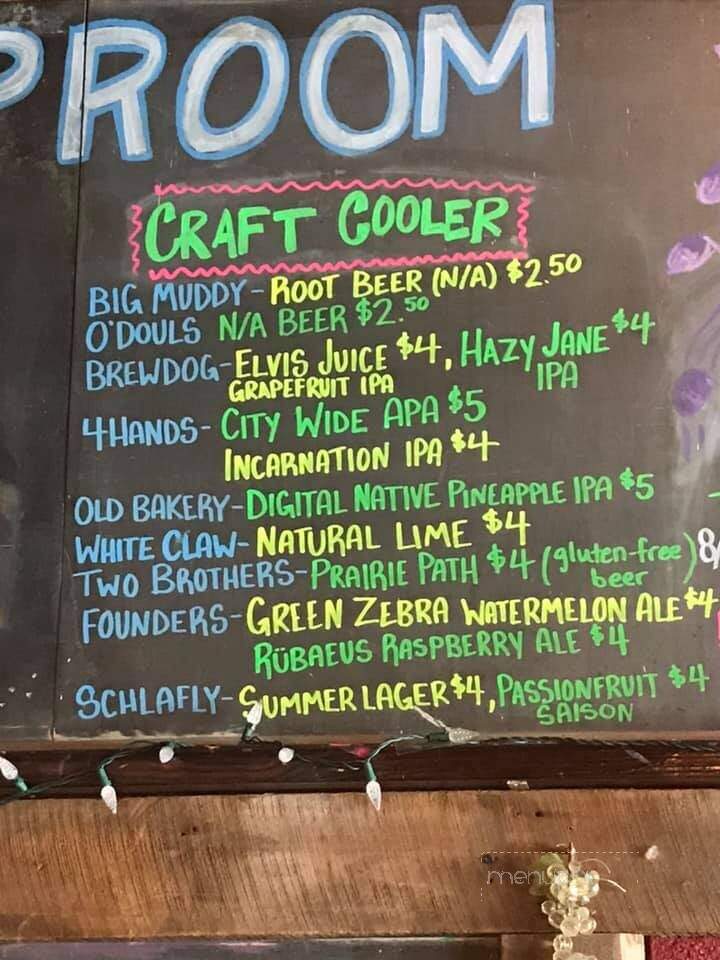 PROOM
CRAFT COOLER
BIG MUDDY - ROOT BEER (N/A) $2.50
O'DOULS N/A BEER $2.50
BREWDOG - ELVIS JUICE $4, HAZY JANE $4
GRAPEFRUIT IPA IPA
4HANDS - CITY WIDE APA $5
INCARNATION IPA $4
OLD BAKERY - DIGITAL NATIVE PINEAPPLE IPA $5
WHITE CLAW - NATURAL LIME $4
TWO BROTHERS - PRAIRIE PATH $4 (gluten-free) 8/
beer
FOUNDERS - GREEN ZEBRA WATERMELON ALE $4
RÜBAEUS RASPBERRY ALE $4
SCHLAFLY - SUMMER LAGER $4, PASSIONFRUIT $4
SAISON